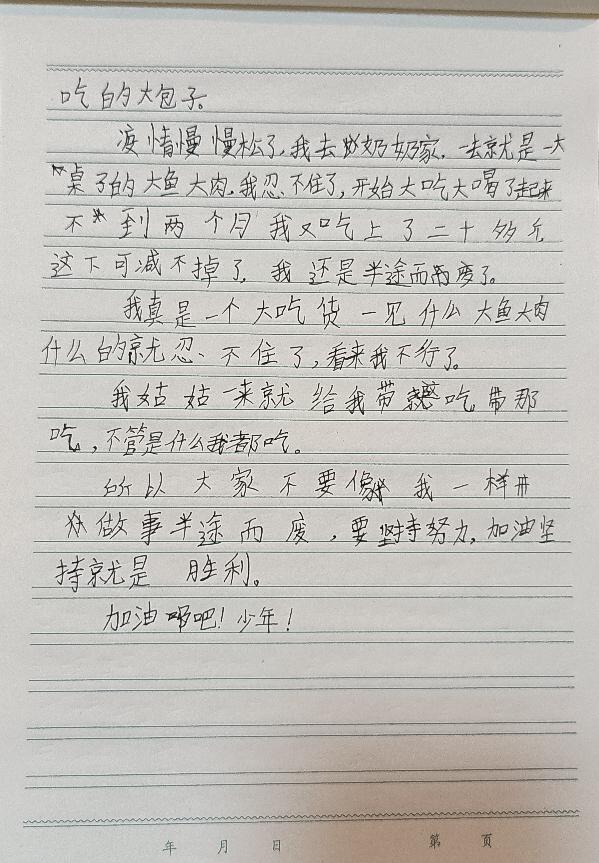 吃的大包子。
疫情慢慢松了,我去奶奶家,一去就是一大
桌子的大鱼大肉,我忍不住了,开始大吃大喝了起来
不到两个月我又吃上了二十多斤
这下可减不掉了,我还是半途而废了。
我真是一个大吃货一见什么大鱼大肉
什么的就忍不住了,看来我不行了。
我姑姑一来就给我带这吃,带那
吃,不管是什么我都吃。
所以大家不要像我一样
做事半途而废,要坚持努力,加油坚
持就是胜利。
加油吧!少年!
年 月 日 第 页